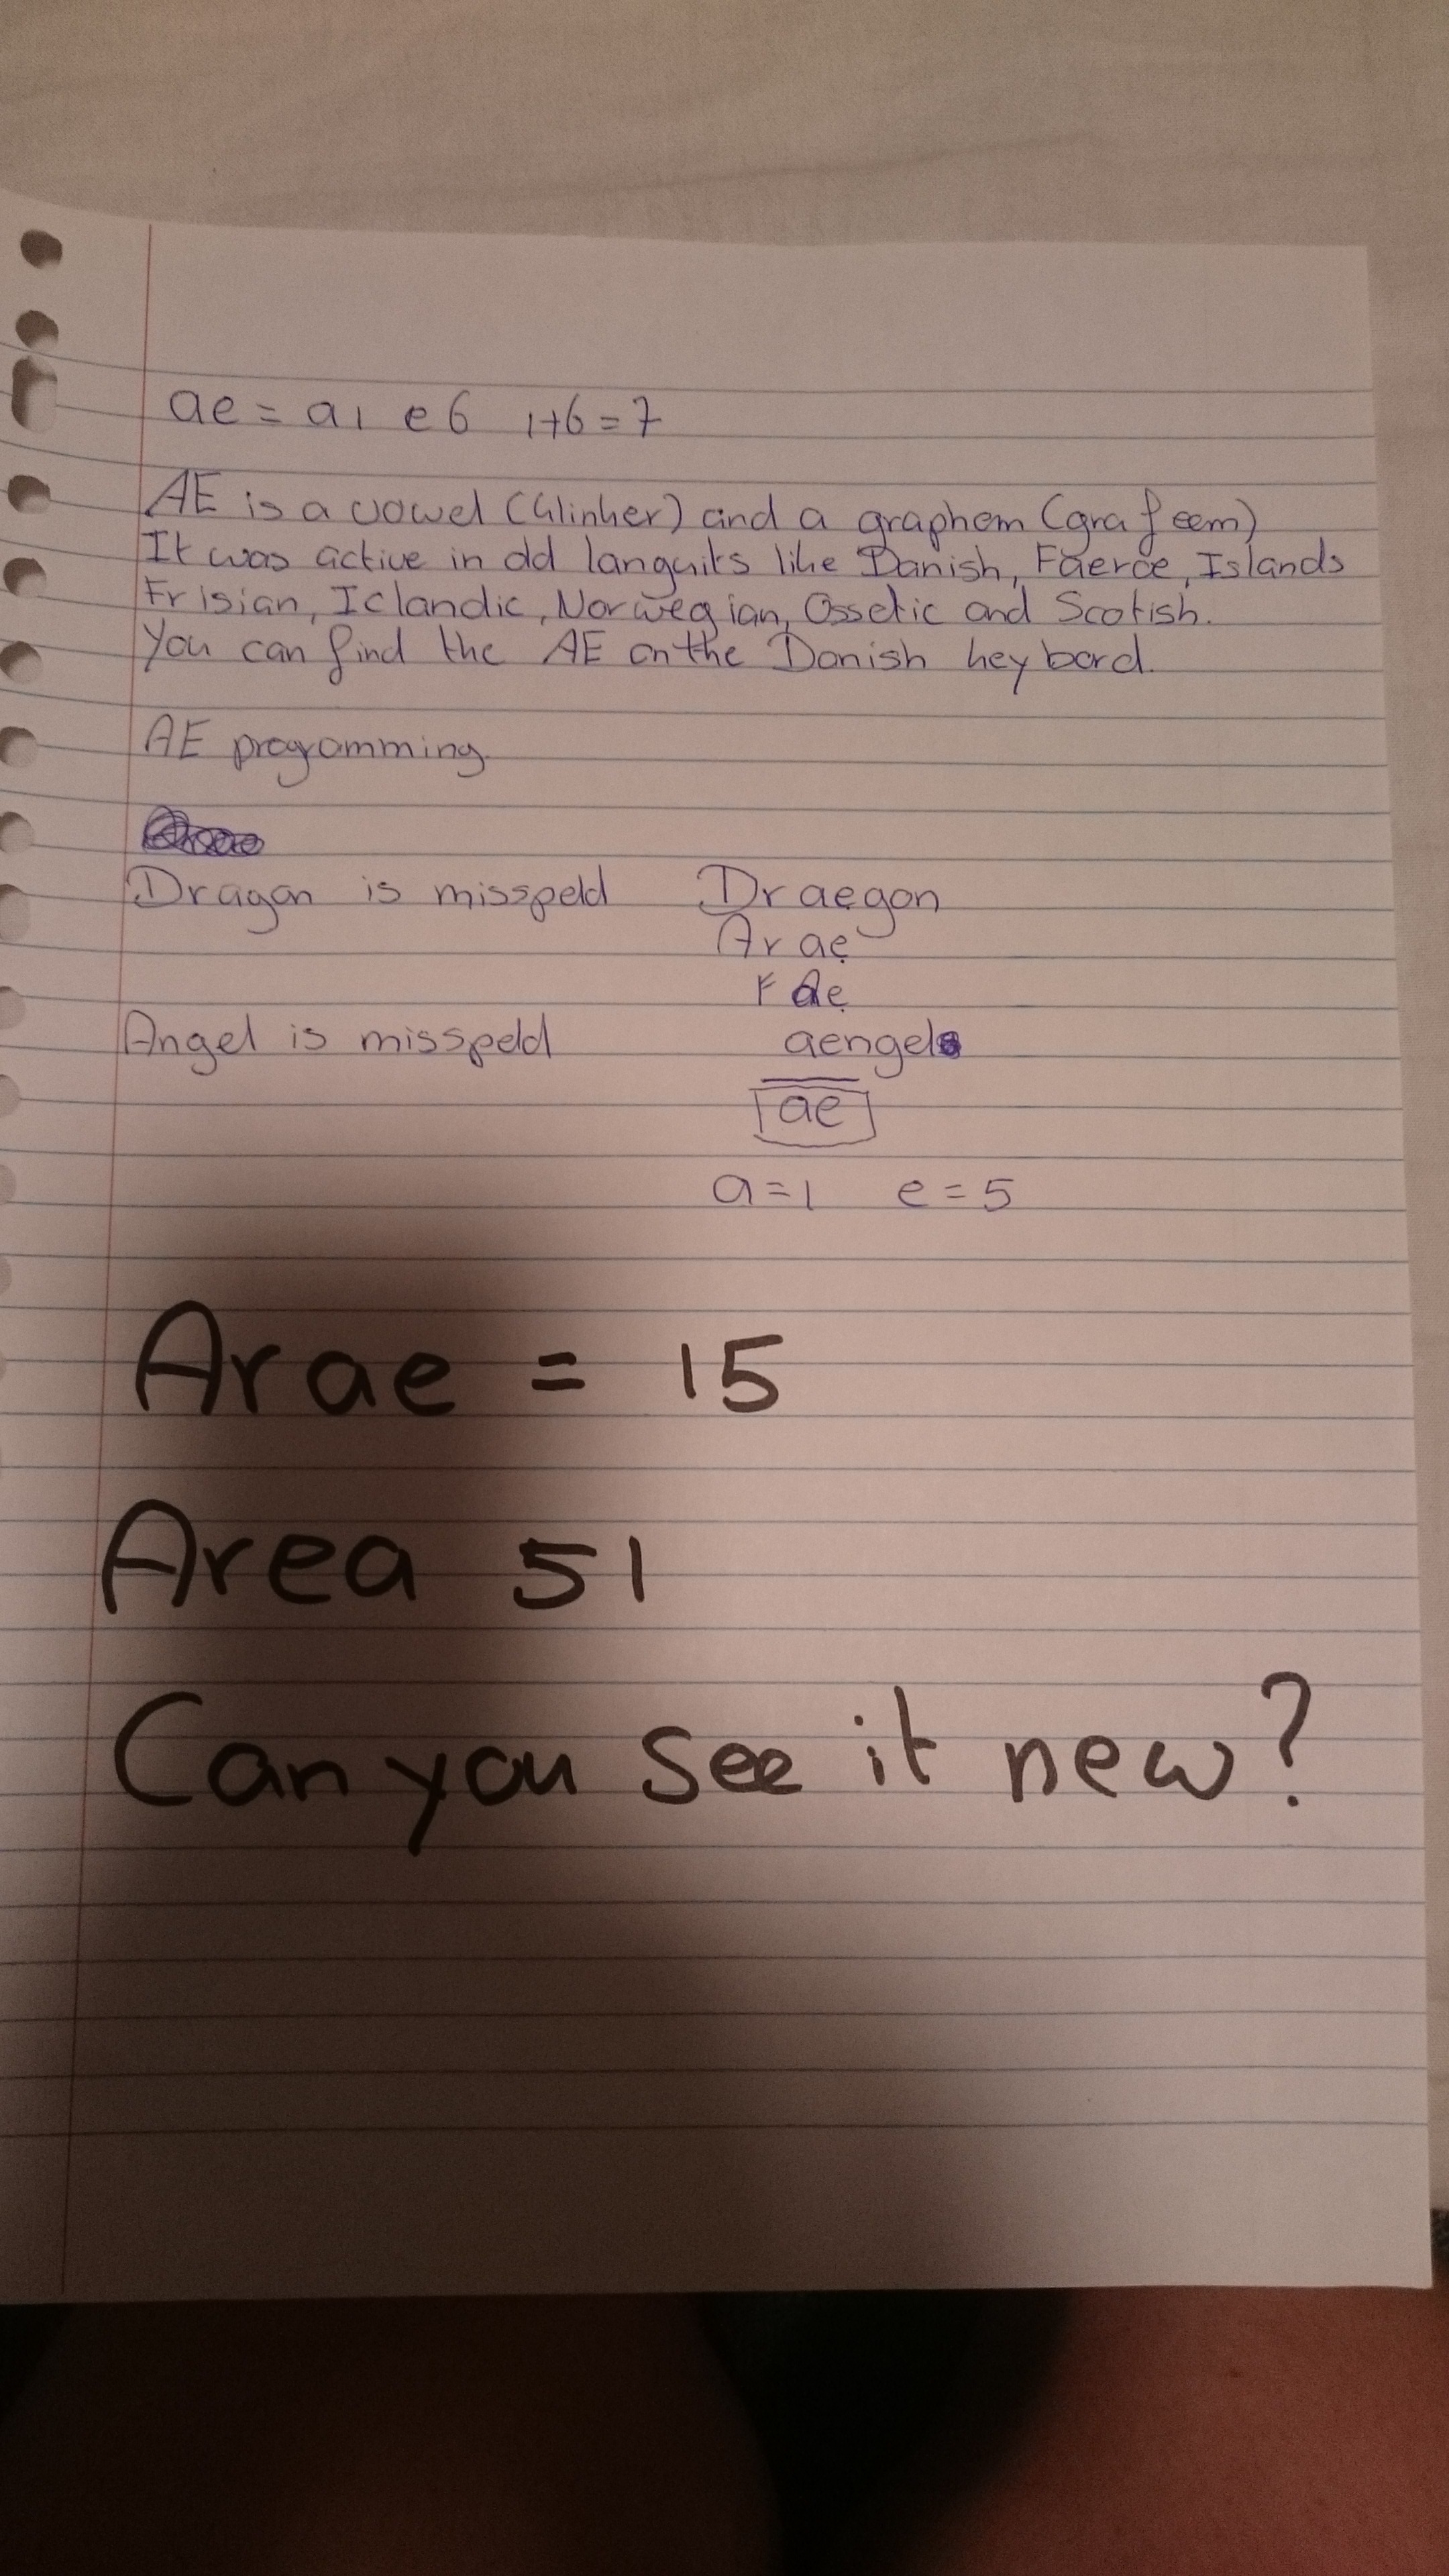 ae = a1 e6 1+6=7
AE is a vowel (klinker) and a graphem (grafeem)
It was active in old languits like Danish, Faeroe, Islands
Frisian, Iclandic, Norwegian, Ossetic and Scotish.
You can find the AE on the Danish keybord.
AE programming.
Dragon is misspeld Draegon
Arae
Fae
Angel is misspeld aengel
ae
a=1 e=5
Arae = 15
Area 51
Can you see it new?